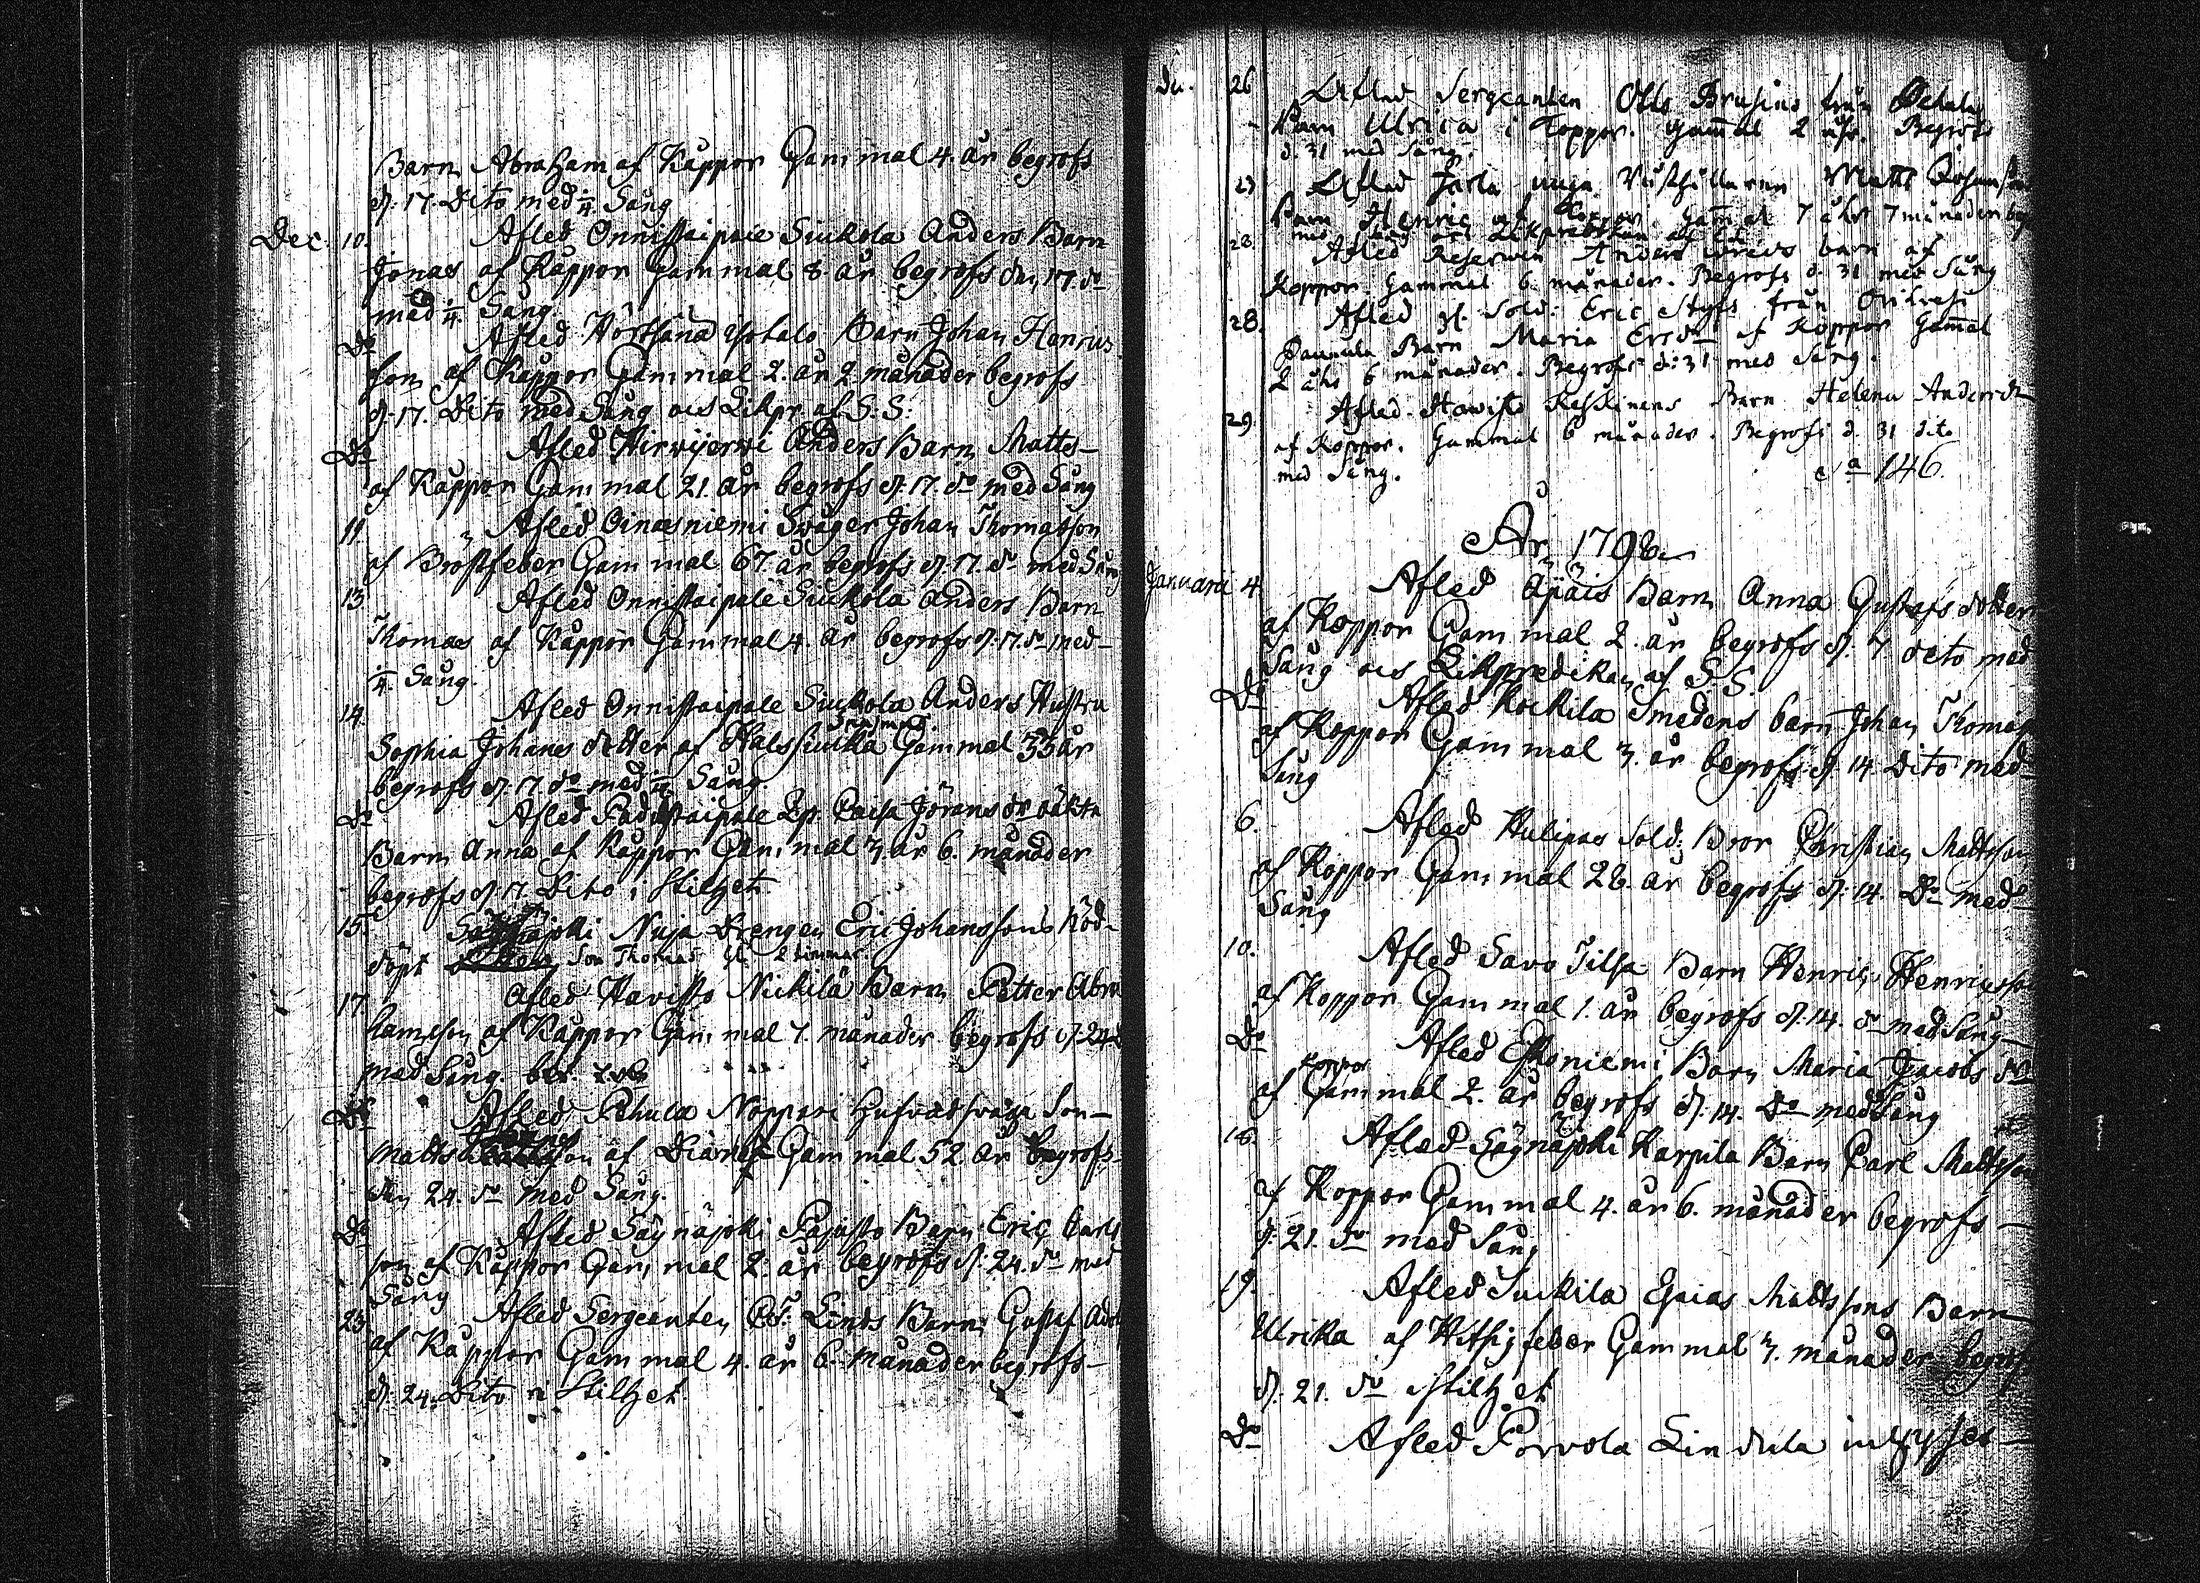 Barn Abraham af Kåppor Gammal 4. år begrofs
d. 17. Dito med 1/4. Sång
Dec. 10. Afled Onnistaipale Siukola Anders Barn
Jonas af Kåppor Gammal 8. år begrofs den 17. do
med 1/4. Sång.
Do Afled Barn Johan Henrics
son af Kåppor Gammal 2. år 2 månader begrofs
d. 17. Dito med Sång ock Likpr. af S. S.
Do Afled Hirvijervi Anders Barn Matts
af Kåppor Gammal 21. år begrofs d. 17. do med Sång
11. Afled Oinasniemi Svåger Johan Thomasson
af Bröstfeber Gammal 67. år begrofs d. 17. do med Sång
13. Afled Onnistaipale Siukola Anders Barn
Thomas af Kåppor Gammal 4. år begrofs d. 17. do med
1/4. Sång.
14. Afled Onnistaipale Siukola Anders Hustru
Sophia Johans dotter af Halssiuka Gammal 35 år
begrofs d. 17 do med 1/4 Sång.
Do Afled Padustaipale Caisa Jörans dr oäkta
Barn Anna af Kåppor Gammal 3. år 6. månader
begrofs d. 17. Dito i Stilhet
15. Säynäjoki Nuja Drengen Eric Johanssons Nöd-
döpt Son Thomas 2 timmar.
17. Afled Havisto Nickilä Barn Petter Abra
hamsson af Kåppor Gammal 7. månader begrofs d. 24 d
med Sång.
Do Afled Pehula Noppari Son
Matts son af Gammal 52 år begrofs
den 24. do med Sång.
Do Afled Säynäjoki Pajusto Barn Eric Carls
son af Kåppor Gammal 2. år begrofs d. 24. do med
Sång
23. Afled Sergeanten Linds Barn Gustaf Adol
af Kåppor Gammal 4. år 6. månader begrofs
d. 24. Dito i Stilhet.
26 Aflled Sergeanten Otto Brusins från
Barn Ulrica i Koppor. Gammal 2 åhr. Begrofs
d. 31 med Sång.
Afled Jarla Matts Johansson
Barn Henric af Koppor. Gammal 7 åhr 7 månader beg
med Sång och Likpredikan af
28 Afled Reserven Anders barn af
Koppor. Gammal 6 månader. Begrofs d. 31 med Sång
28. Afled Sold: Eric Styfs från
Barn Maria Ersdr af Koppor Gammal
2 åhr 6 månader. Begrofs d: 31 med Sång.
29. Afled Havisto Keskinens Barn Helena Andersdr
af Koppor. Gammal 6 månader. Begrofs d. 31 dito
med Sång.
Sa 146.
År 1798
Januarii 4. Afled Äijäis Barn Anna Gustafs dotter
af Koppor Gammal 2. år begrofs d. 7. dito med
Sång ock Likpredikan af S. S.
Do Afled Kockila Smedens barn Johan Thomas
af Koppor Gammal 3. år begrofs d. 14. Dito med
Sång
6. Afled Hulipas Sold: Bror Christian Mattsson
af Koppor Gammal 28. år begrofs d. 14. Do med
Sång
10. Afled Savo Tilsa Barn Henric Henricsson
af Koppor Gammal 1. år begrofs d. 14. do med Sång
Do Afled Eskoniemi Barn Maria Jacobs dr
af Koppor Gammal 2. år begrofs d. 14. Do med Sång
18. Afled Säynäjoki Karpila Barn Carl Mattsson
af Koppor Gammal 4. år 6. månader begrofs
d. 21. do med Sång
19. Afled Suckila Esaias Mattssons Barn
Ulrika af Hitsig feber Gammal 3. månader begrofs
d. 21. do i Stilhet
Do Afled Porvola Lindula inhyses